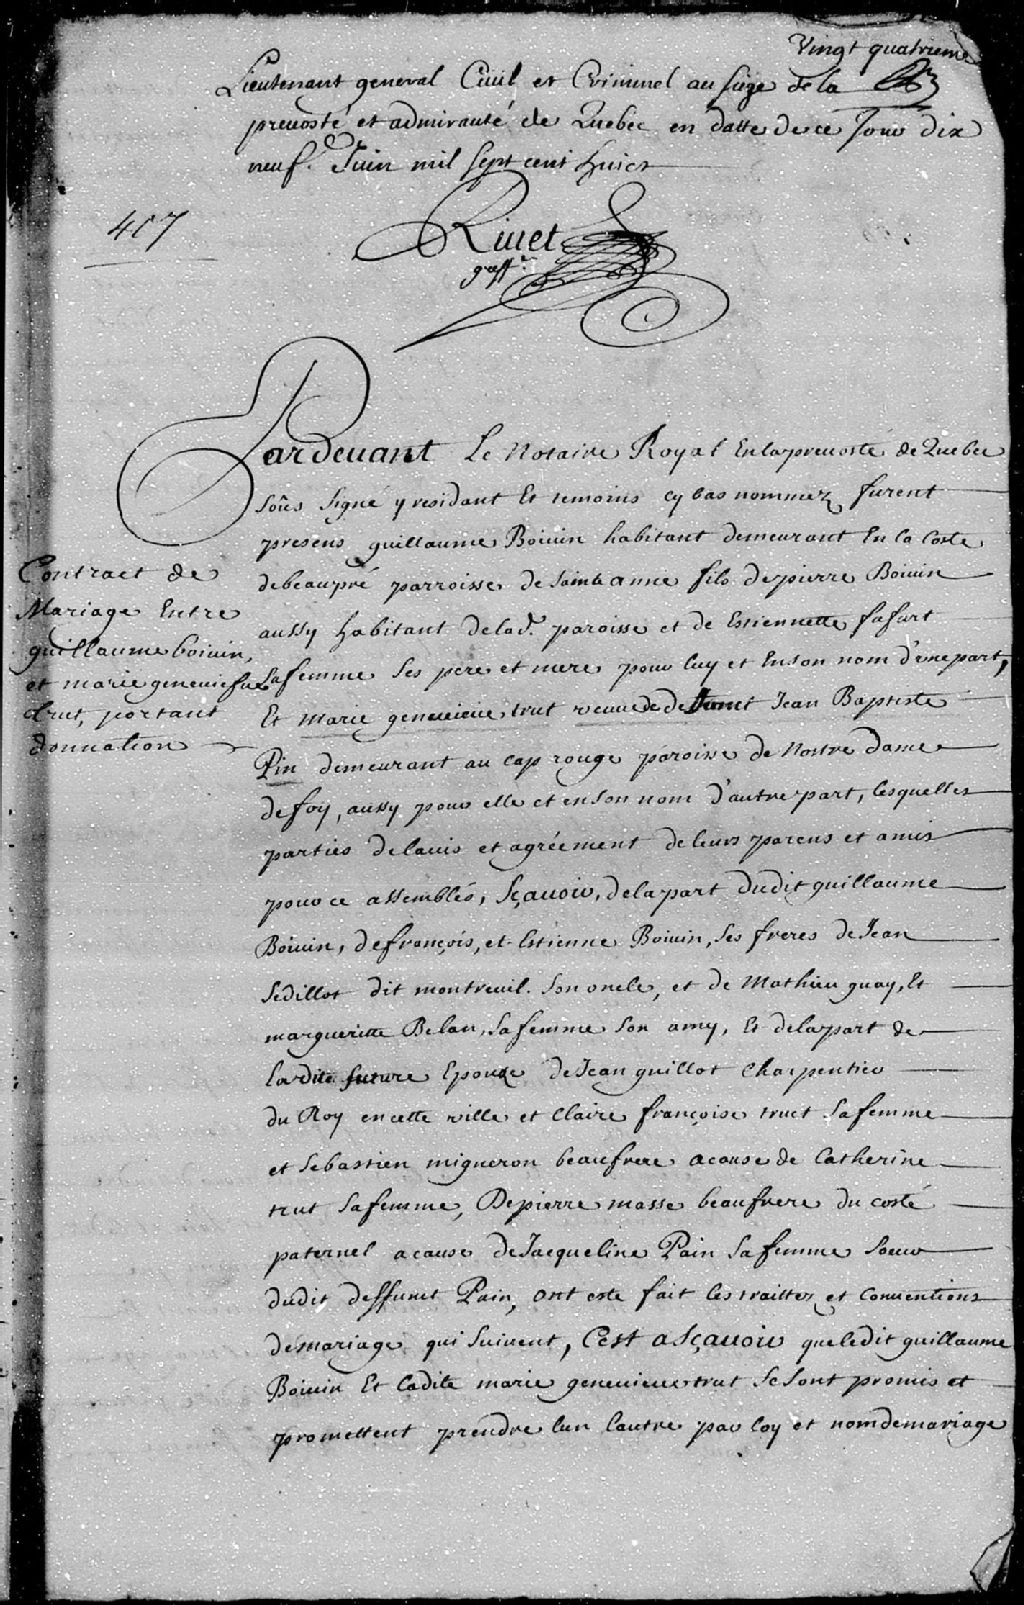 Vingt quatrieme
Lieutenant general Ciuil et Criminel au siege de la
preuosté et admirauté de Quebec en datte de ce Jour dix
neuf.e Juin mil sept cent huict
407
Riuet
greff.r
Pardeuant Le Notaire Royal En la preuosté de Quebec
soûs signé y residant Et temoins cy bas nommez furent
presens guillaume Boiuin habitant demeurant En la Coste
de beaupré parroisse de Sainte anne fils de pierre Boiuin
aussy habitant de lad. paroisse et de Estiennette fafart
sa femme ses pere et mere pour luy et En son nom d'une part,
Et marie geneuieue trut veuue de deffunct Jean Baptiste
Pin demeurant au cap rouge paroisse de Nostre dame
de foy, aussy pour elle et en son nom d'autre part, lesquelles
parties de lauis et agréement de leurs parens et amis
pour ce assemblés, sçauoir, de la part dudit guillaume
Boiuin, de françois, et Estienne Boiuin, ses freres de Jean
Sedillot dit montreuil son oncle, et de Mathieu guay, Et
margueritte Belan, sa femme son amy, Et de la part de
la dite future Epouze de Jean guillot Charpentier
du Roy en cette ville et Claire françoise truct sa femme
et Sebastien migneron beaufrere a cause de Catherine
trut sa femme, De pierre masse beaufrere du costé
paternel a cause de Jacqueline Pain sa femme soeur
dudit deffunct Pain, ont esté fait les traittez et Conuentions
de mariage qui suiuent, C'est a sçauoir que ledit guillaume
Boiuin Et ladite marie geneuieue trut se sont promis et
promettent prendre l'un l'autre par loy et nom de mariage
Contract de
Mariage Entre
guillaume boiuin,
et marie geneuiefue
trut, portant
donnation